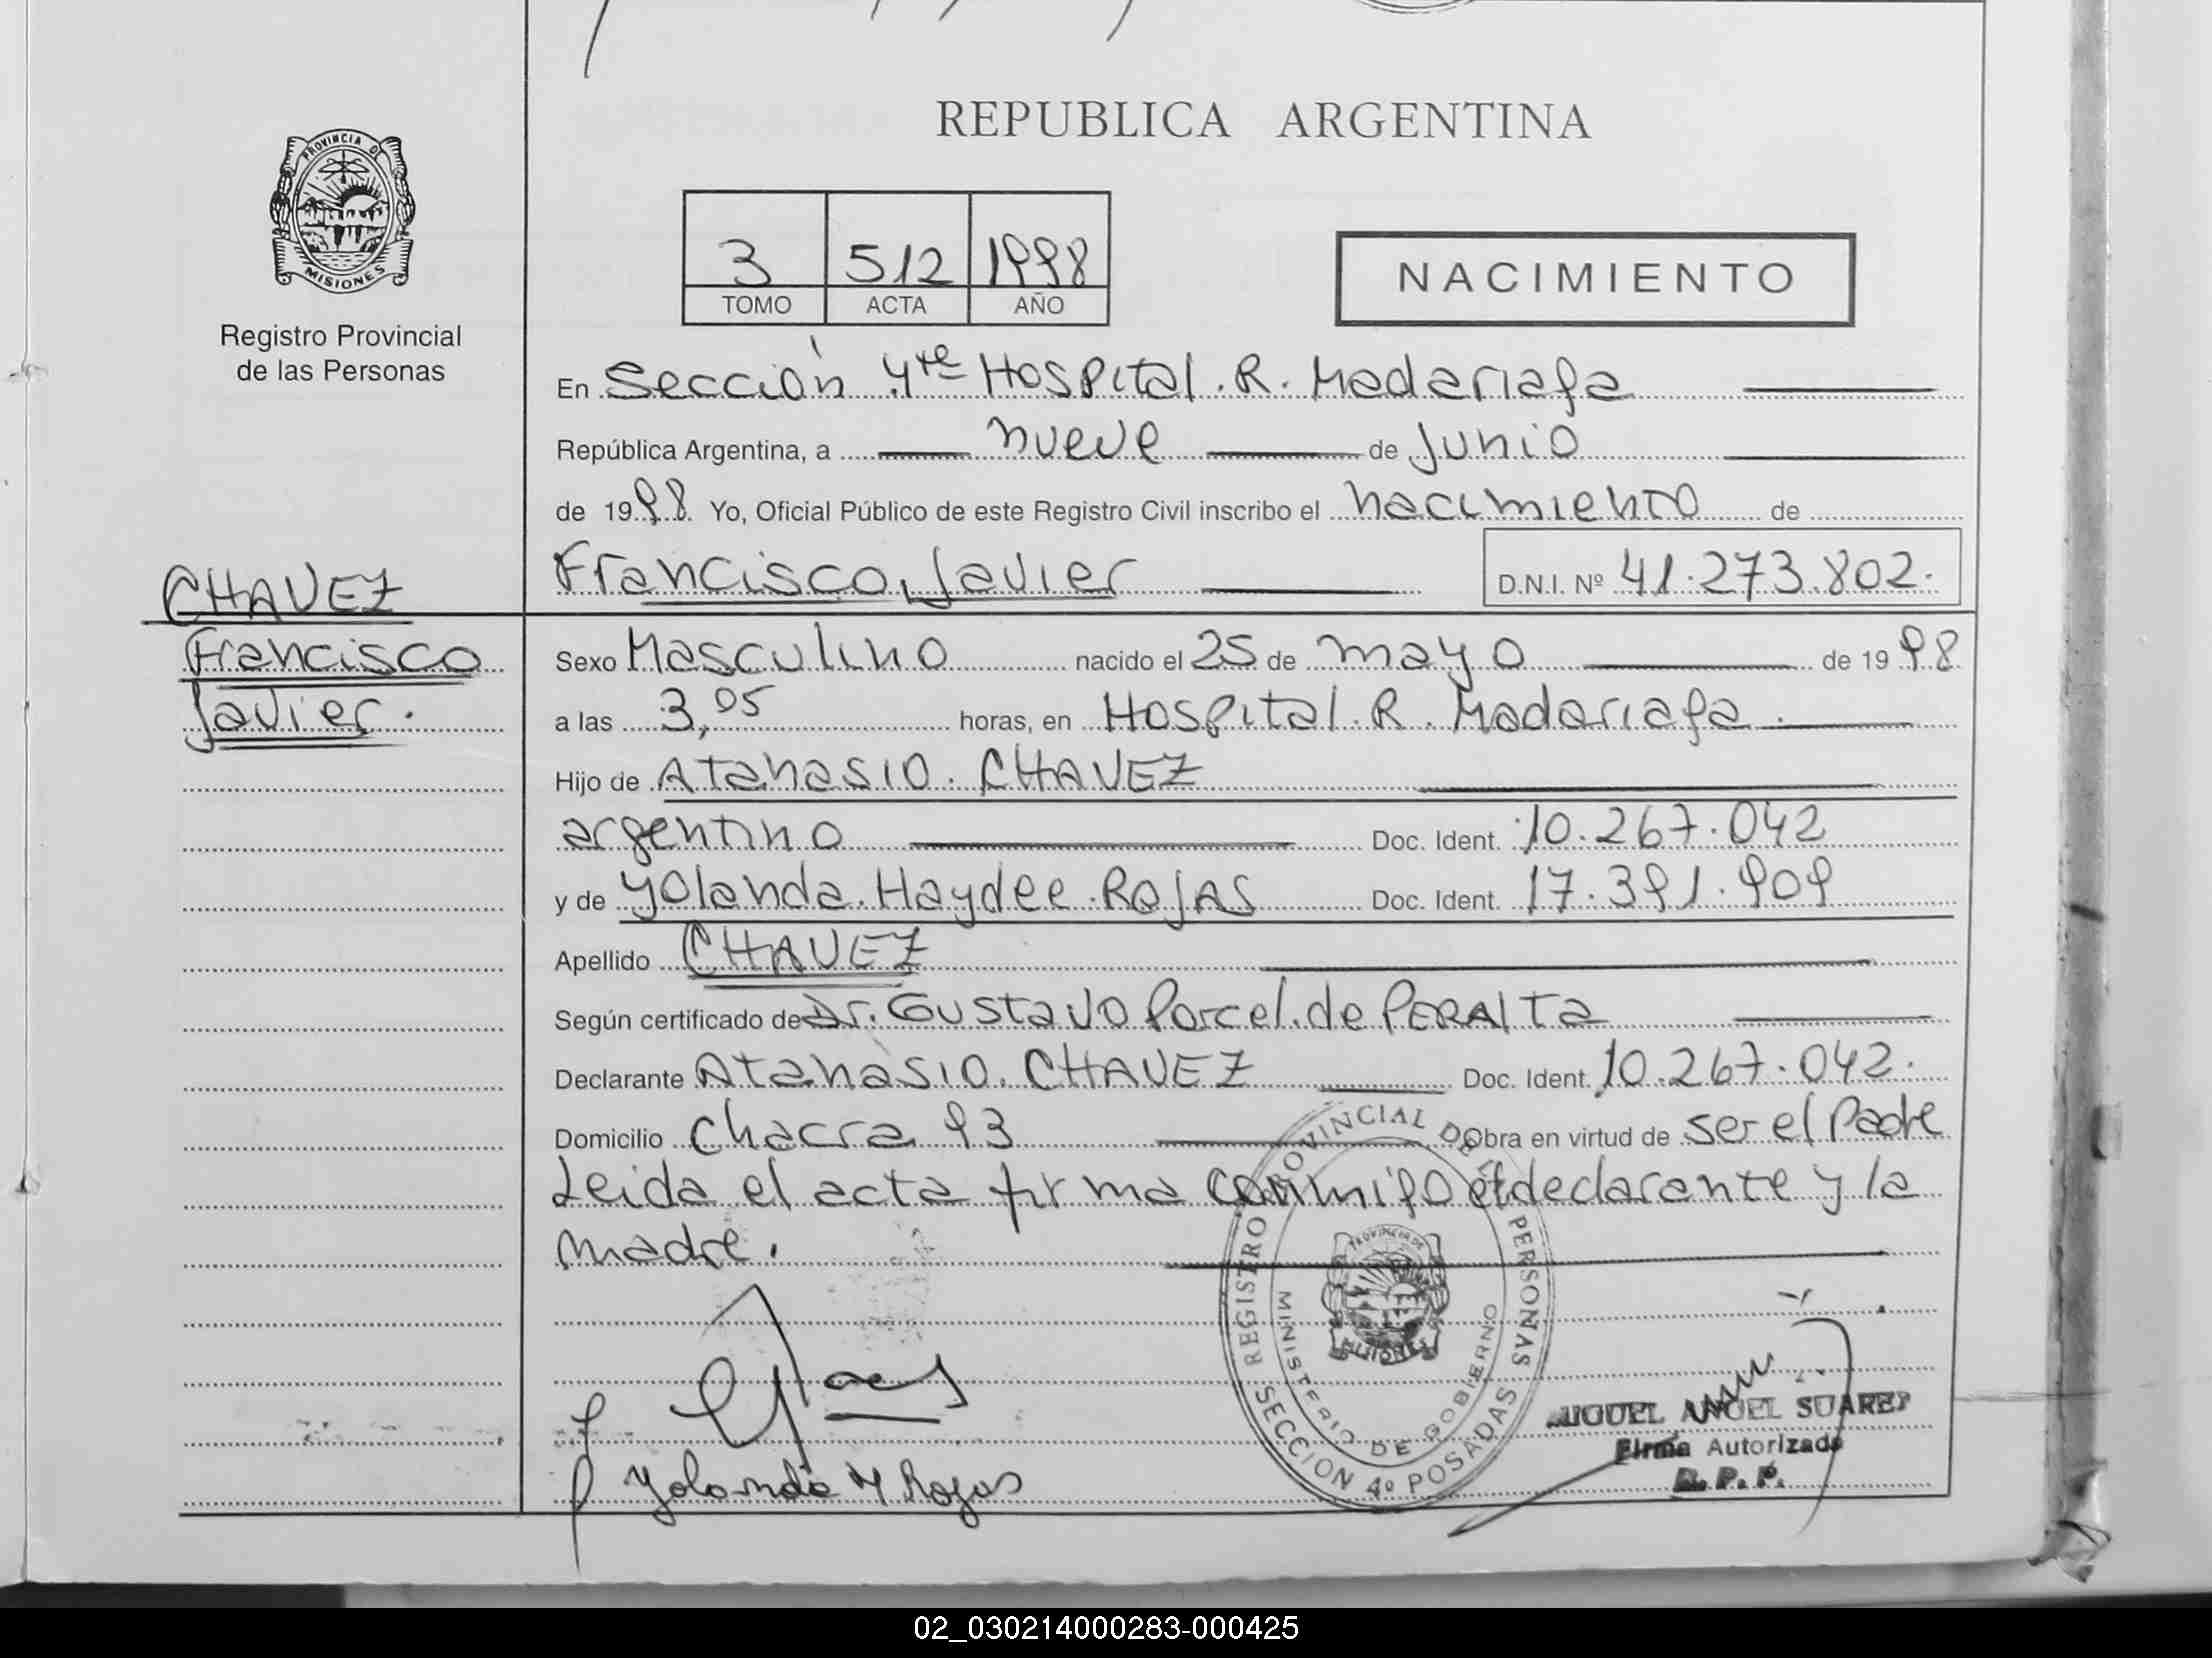 REPUBLICA ARGENTINA
PROVINCIA DE
MISIONES
Registro Provincial
de las Personas
3 512 1998
TOMO ACTA AÑO
NACIMIENTO
En Sección 4ta Hospital. R. Madariaga
República Argentina, a nueve de Junio
de 1998 Yo, Oficial Público de este Registro Civil inscribo el nacimiento de
Francisco Javier D.N.I. Nº 41.273.802.
CHAVEZ
Francisco
Javier.
Sexo Masculino nacido el 25 de mayo de 1998
a las 3,05 horas, en Hospital. R. Madariaga.
Hijo de Atanasio. CHAVEZ
argentino Doc. Ident. 10.267.042
y de Yolanda. Haydee. ROJAS Doc. Ident. 17.391.909
Apellido CHAVEZ
Según certificado de Dr. Gustavo Porcel. de PERALTA
Declarante Atanasio. CHAVEZ Doc. Ident. 10.267.042.
Domicilio Chacra 93 Obra en virtud de ser el Padre
Leida el acta firma conmigo el declarante y la
madre.
REGISTRO PROVINCIAL DE LAS PERSONAS
MINISTERIO DE GOBIERNO
PROVINCIA DE
MISIONES
SECCION 4º POSADAS
Yolanda H Rojas
MIGUEL ANGEL SUAREZ
Firma Autorizada
R.P.P.
02_030214000283-000425